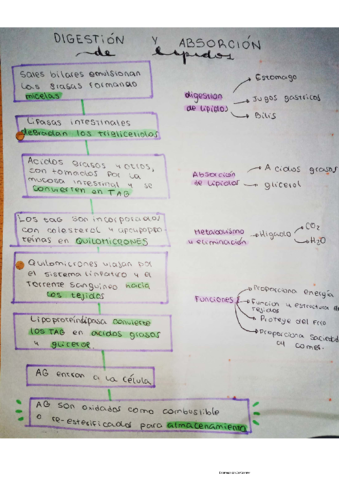 DIGESTIÓN Y ABSORCIÓN
de lípidos
Sales biliares emulsionan
las grasas formando
micelas
Lipasas intestinales
degradan los triglicéridos
Acidos grasos y otros,
son tomados por la
mucosa intestinal y se
convierten en TAG
Los TAG son incorporados
con colesterol y apolipopro
teinas en QUILOMICRONES
Quilomicrones viajan por
el sistema linfático y el
Torrente sanguíneo hacia
los tejidos
Lipoproteinlipasa convierte
los TAG en acidos grasos
y glicerol
AG entran a la célula
AG son oxidados como combustible
o re-esterificados para almacenamiento
digestion
de lípidos
Estomago
Jugos gastricos
Bilis
Absorción
de lípidos
Acidos grasos
glicerol
Metabolismo
y eliminación
Higado
CO2
H2O
Funciones
Proporciona energía
Función y estructura de
Tejidos
Proteje del frío
Proporciona Sociedad
al comer.